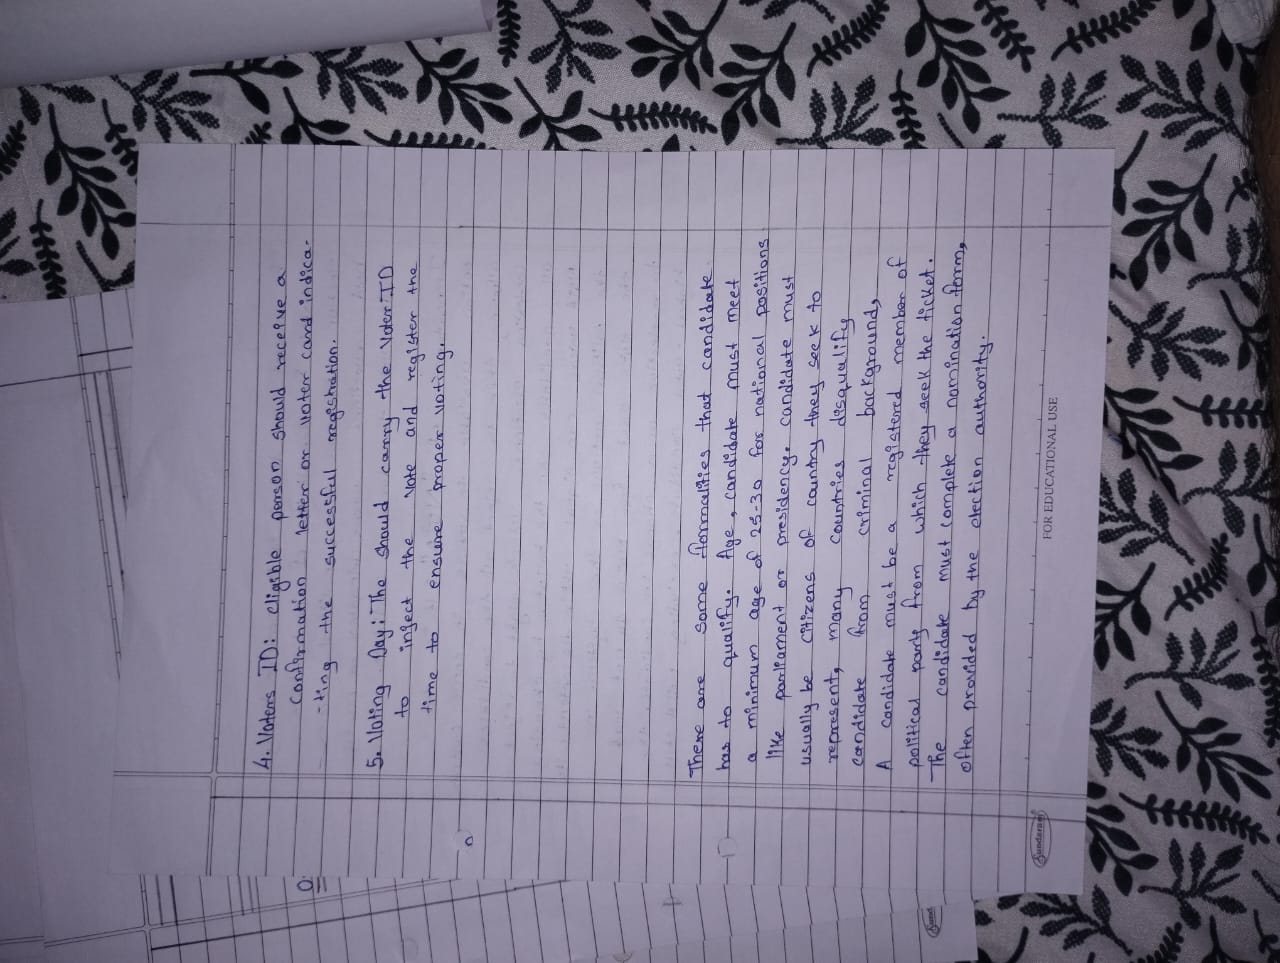 4. Voters ID: eligible person should receive a
confirmation letter or voter card indica-
-ting the successful registration.
5. Voting Day: The should carry the Voter ID
to inject the vote and register the
time to ensure proper voting.
There are some formalities that candidate
has to qualify. Age, candidate must meet
a minimum age of 25-30 for national positions
like parliament or presidency. candidate must
usually be citizens of country they seek to
represent, many countries disqualify
candidate from criminal background,
A candidate must be a registered member of
political party from which they seek the ticket.
The candidate must complete a nomination form,
often provided by the election authority.
Sundaram
FOR EDUCATIONAL USE
Sund